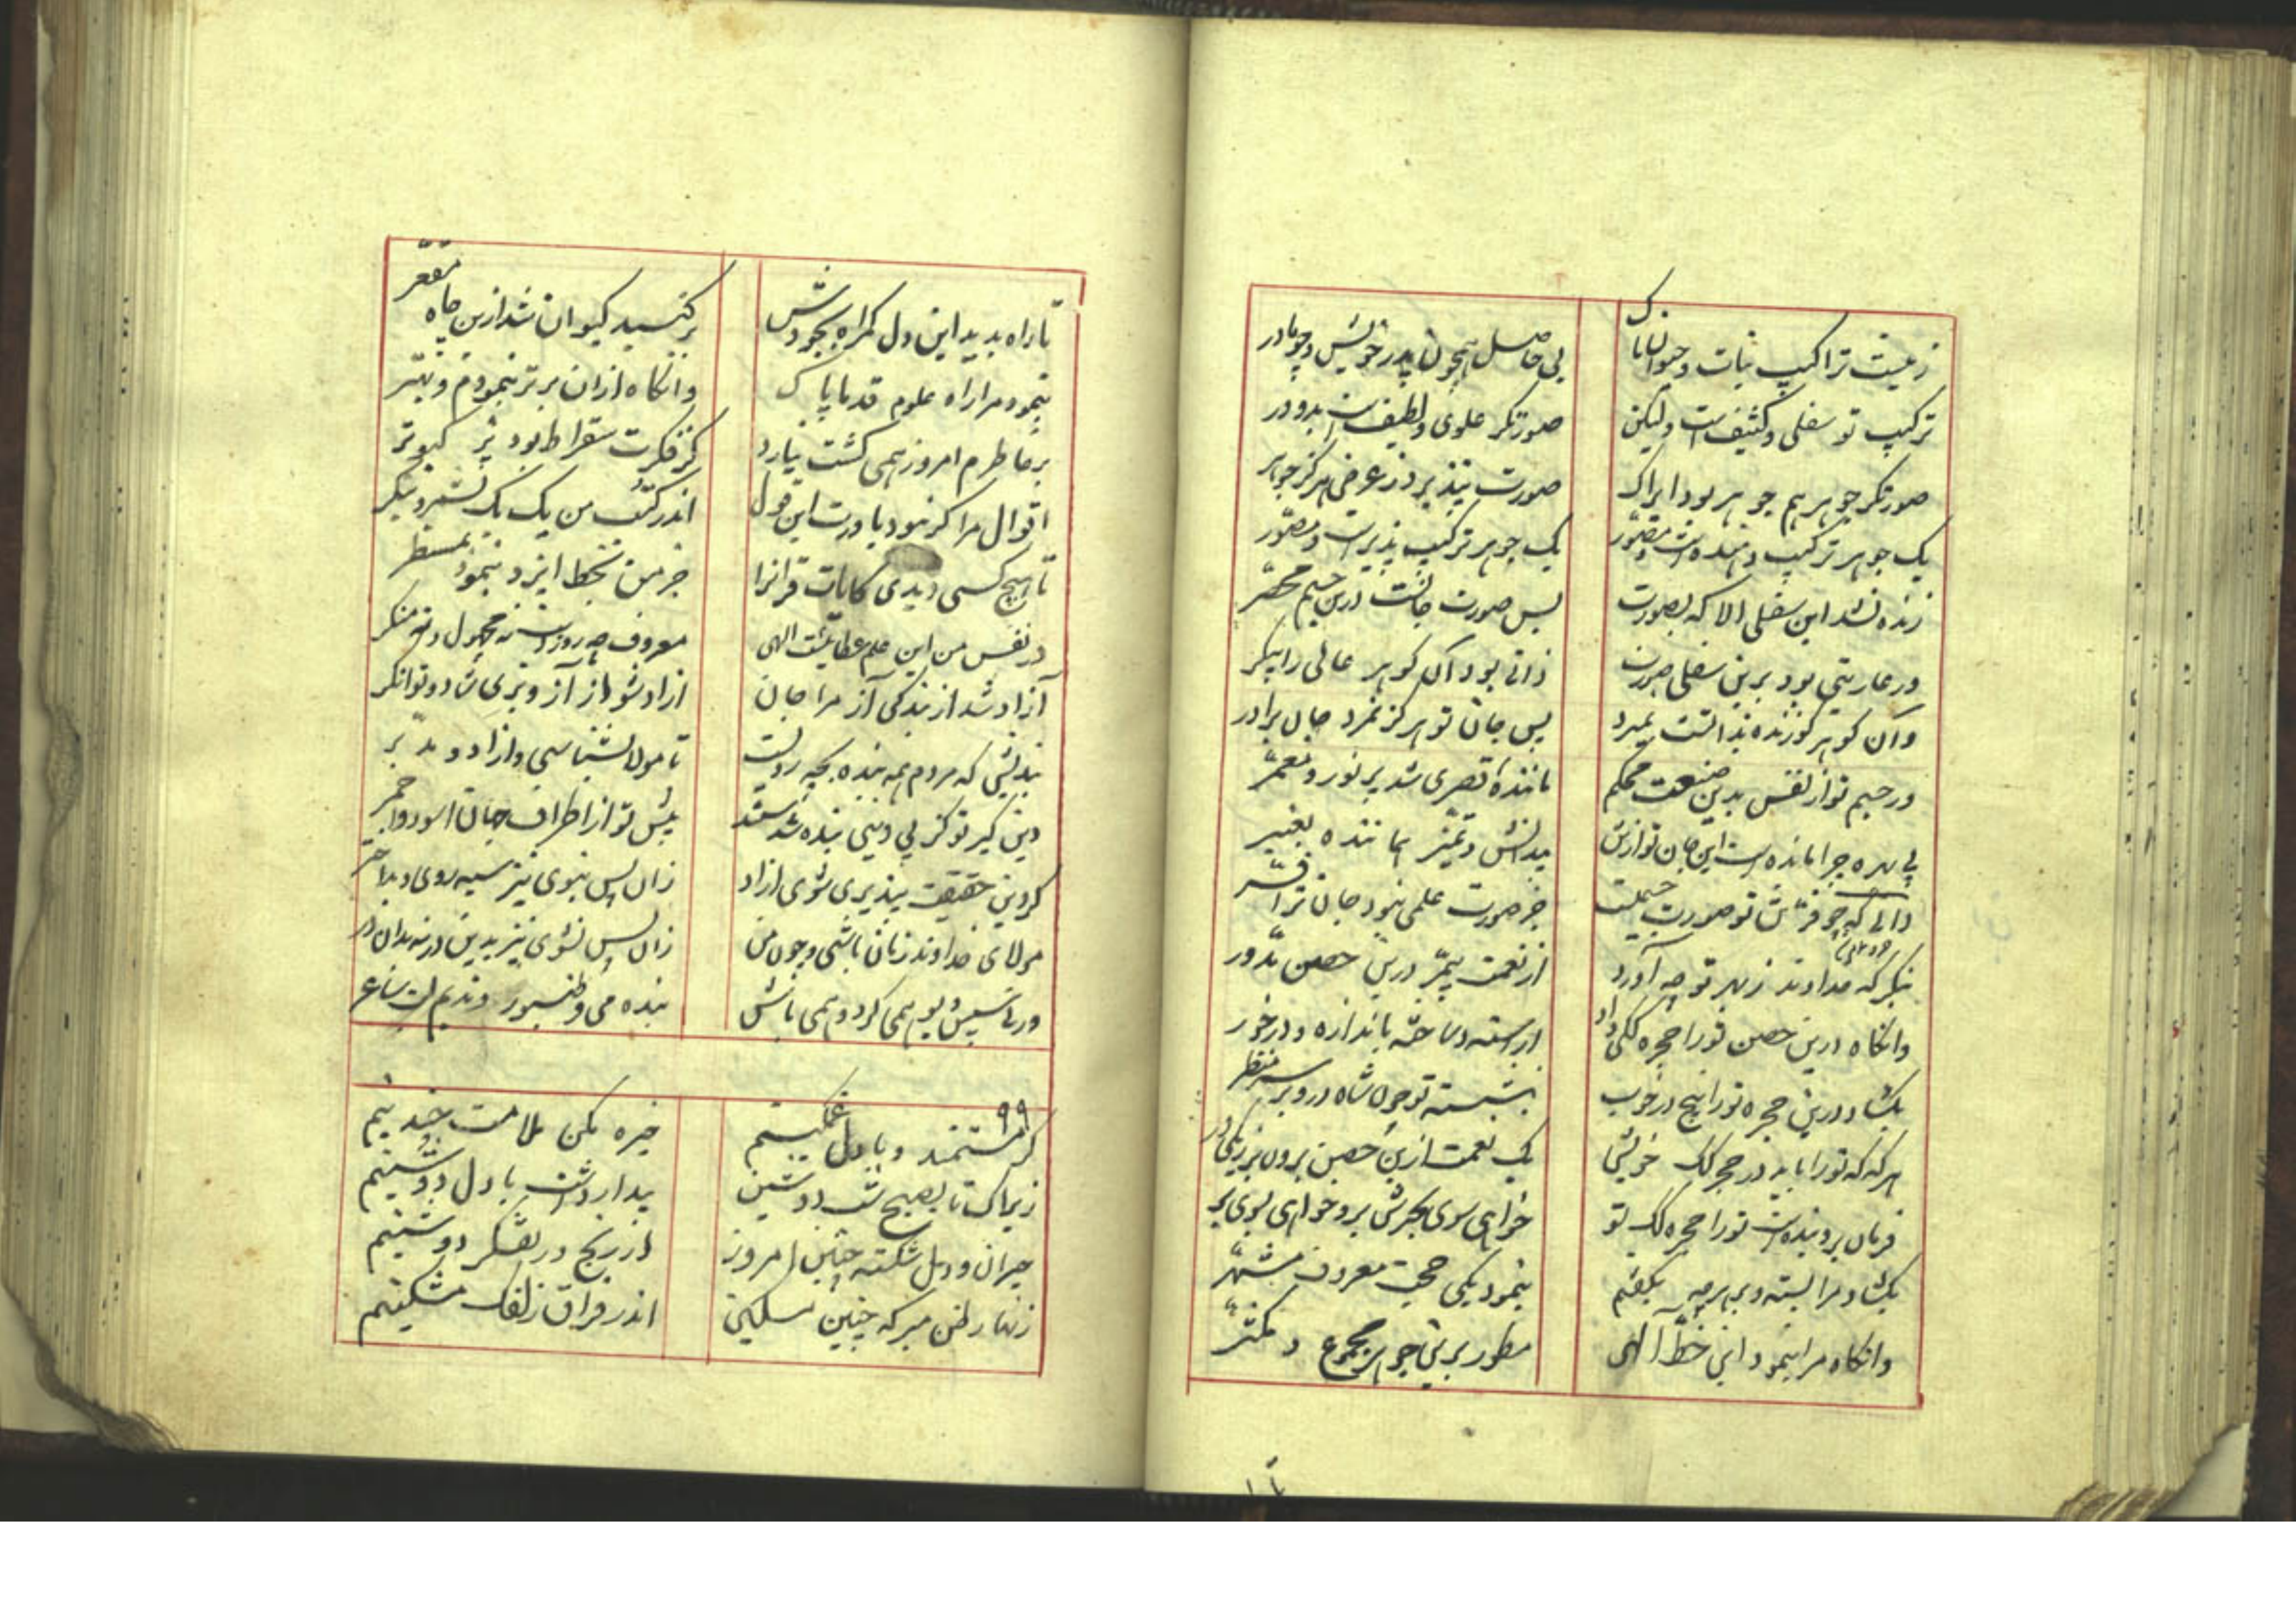 زینت تراکیب نبات و حیوان پاک
بی حاصل همچون پدر خویش و چو مادر
ترکیب تو سفلی و کثیف است ولیکن
صورتگر علوی و لطیف است بدو در
صورتگر جوهر هم جوهر بود ایراک
صورت نپذیرد ز عرض هرگز جوهر
یک جوهر ترکیب دهنده است و مصور
یک جوهر ترکیب پذیر است و مصور
زنده نشد این سفلی الا که بصورت
پس صورت جانست درین جسم محضر
ور عاریتی بود برین سفلی صورت
ذاتی بود آن گوهر عالی را پیکر
وان گوهر کو زنده بذاتست نمیرد
پس جان تو هرگز نمرد جان برادر
در جسم تو از نفس بدین صنعت محکم
ماننده قصری شد پر نور و معمر
بی بهره چرا مانده است این جان تو ازین
بدانش و تمیز بماننده
دانی که چو شد تو صورت جسمت
جز صورت علمی نبود جان ترا
بنگر که خداوند ز بهر تو چه آورد
از نعمت بیمر درین حصن مدور
وانگاه درین حصن تو را حجره کی داد
آراسته و ساخته باندازه و درخور
بگشاد درین حجره تو را پنج در خوب
بنشسته تو چون شاه درو بر سر منظر
هرگه که تو را باید در حجره ک خویش
یک نعمت ازین حصن برون نیز یکی در
خواهی سوی بحرش بر و خواهی بسوی بر
فرمان بر و بنده است تو را حجره ک تو
بگشاد مرا بسته و بهر چه بگفتم
بنمود یکی حجت معروف مشهر
وانگاه مرا بنمود این خط الهی
مسطور برین جوهر مجموع و مکثر
تا راه بدید این دل گمراه بجودش
بر گنبد کیوان شد ازین چاه مقعر
بنمود مرا راه علوم قدما پاک
وانگاه ازان برتر بنمودم و بهتر
بر خاطرم امروز همی گشت نیارد
گر فکرت سقراط بود پر کبوتر
اقوال مرا گر نبود باورت این قول
اندر کتب من یک یک بشمر و بنگر
تا هیچ کسی دیدی کایات قرانرا
جز من بخط ایزد بنمود مسطر
در نفس من این علم عطائیست الهی
معروف چو روزست نه مجهول و نه منکر
آزاد شد از بندگی آز مرا جان
آزاد شو از آز و بزی شاد و توانگر
بندیش که مردم همه بنده بچه رویست
تا مولا بشناسی و آزاد و مدبر
دین گیر تو کز بی دینی بنده شدستند
پیش تو از اطراف جهان اسود و احمر
گر دین حقیقت بپذیری شوی آزاد
زان پس نبوی نیز سیه روی و بداختر
مولای خداوند زمان باشی و چون من
زان پس نشوی نیز بدین در نه بدان در
بنده می و طنبور و ندیم لب ساغر
۹۹
گر مستمند و با دل غمگینم
خیره مکن ملامت چندینم
زیراک تا بصبح شب دوشین
بیدار داشت باد دل دوشینم
حیران و دل شکته چنین امروز
از رنج و ز تفکر دوشینم
زنهار ظن مبر که چنین مسکین
اندر فراق زلفک مشکینم